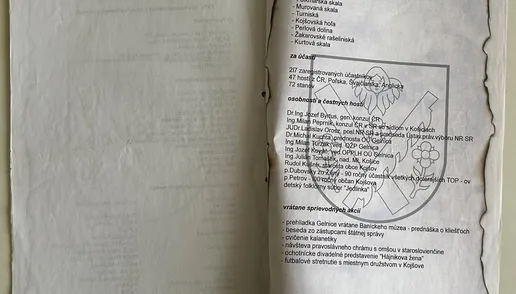 - Murovaná skala
- Turniská
- Kojšovská hoľa
- Perlová dolina
- Žakarovské rašeliniská
- Kurtová skala
za účasti
217 zaregistrovaných účastníkov
47 hostí z ČR, Poľska, Švajčiarska, Anglicka
72 stanov
osobností a čestných hostí
Dr.Ing Jozef Byrtus, gen. konzul ČR
Ing Milan Peprník, konzul ČR v SR so sídlom v Košiciach
JUDr.Ladislav Orosz, posl.NR SR a predseda Ústav práv.výboru NR SR
Dr.Michal Kuchta, prednosta OÚ Gelnica
Ing Milan Turžák, ved. OŽP Gelnica
Ing Jozef ved.OPPLH OÚ Gelnica
Ing Julian Tomaštík, riad. ML Košice
Rudol starosta obce Kojšov
p.Dubovský zo Žiliny - 90 ročný účastník všetkých doterajších TOP - ov
p.Petrov - 100 ročný občan Kojšova
detský folklórny súbor "Jedlinka"
vrátane sprievodných akcií
- prehliadka Gelnice vrátane Baníckeho múzea - prednáška o kliešťoch
- beseda zo zástupcami štátnej správy
- cvičenie kalanetiky
- návšteva pravoslávneho chrámu s omšou v staroslovienčine
- ochotnícke divadelné predstavenie "Hájnikova žena"
- futbalové stretnutie s miestnym družstvom v Kojšove